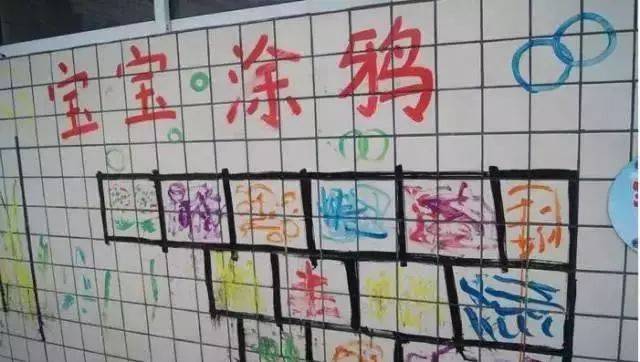 宝宝涂鸦